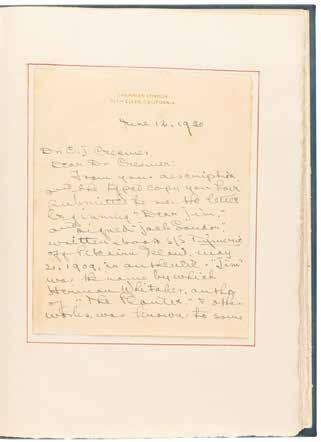 CHARMIAN LONDON
GLEN ELLEN, CALIFORNIA
June 12, 1930
Dr. C. J. Creamer,
Dear Dr. Creamer:
From your description,
and the typed copy you have
submitted to me, the letter
beginning "Dear Jim,"
and signed Jack London,
written aboard S/S Tymeric
off Pitcairn Island, May
2, 1909, is authentic. "Jim"
was the name by which
Herman Whitaker, author
of "The Planter" & other
works, was known to some